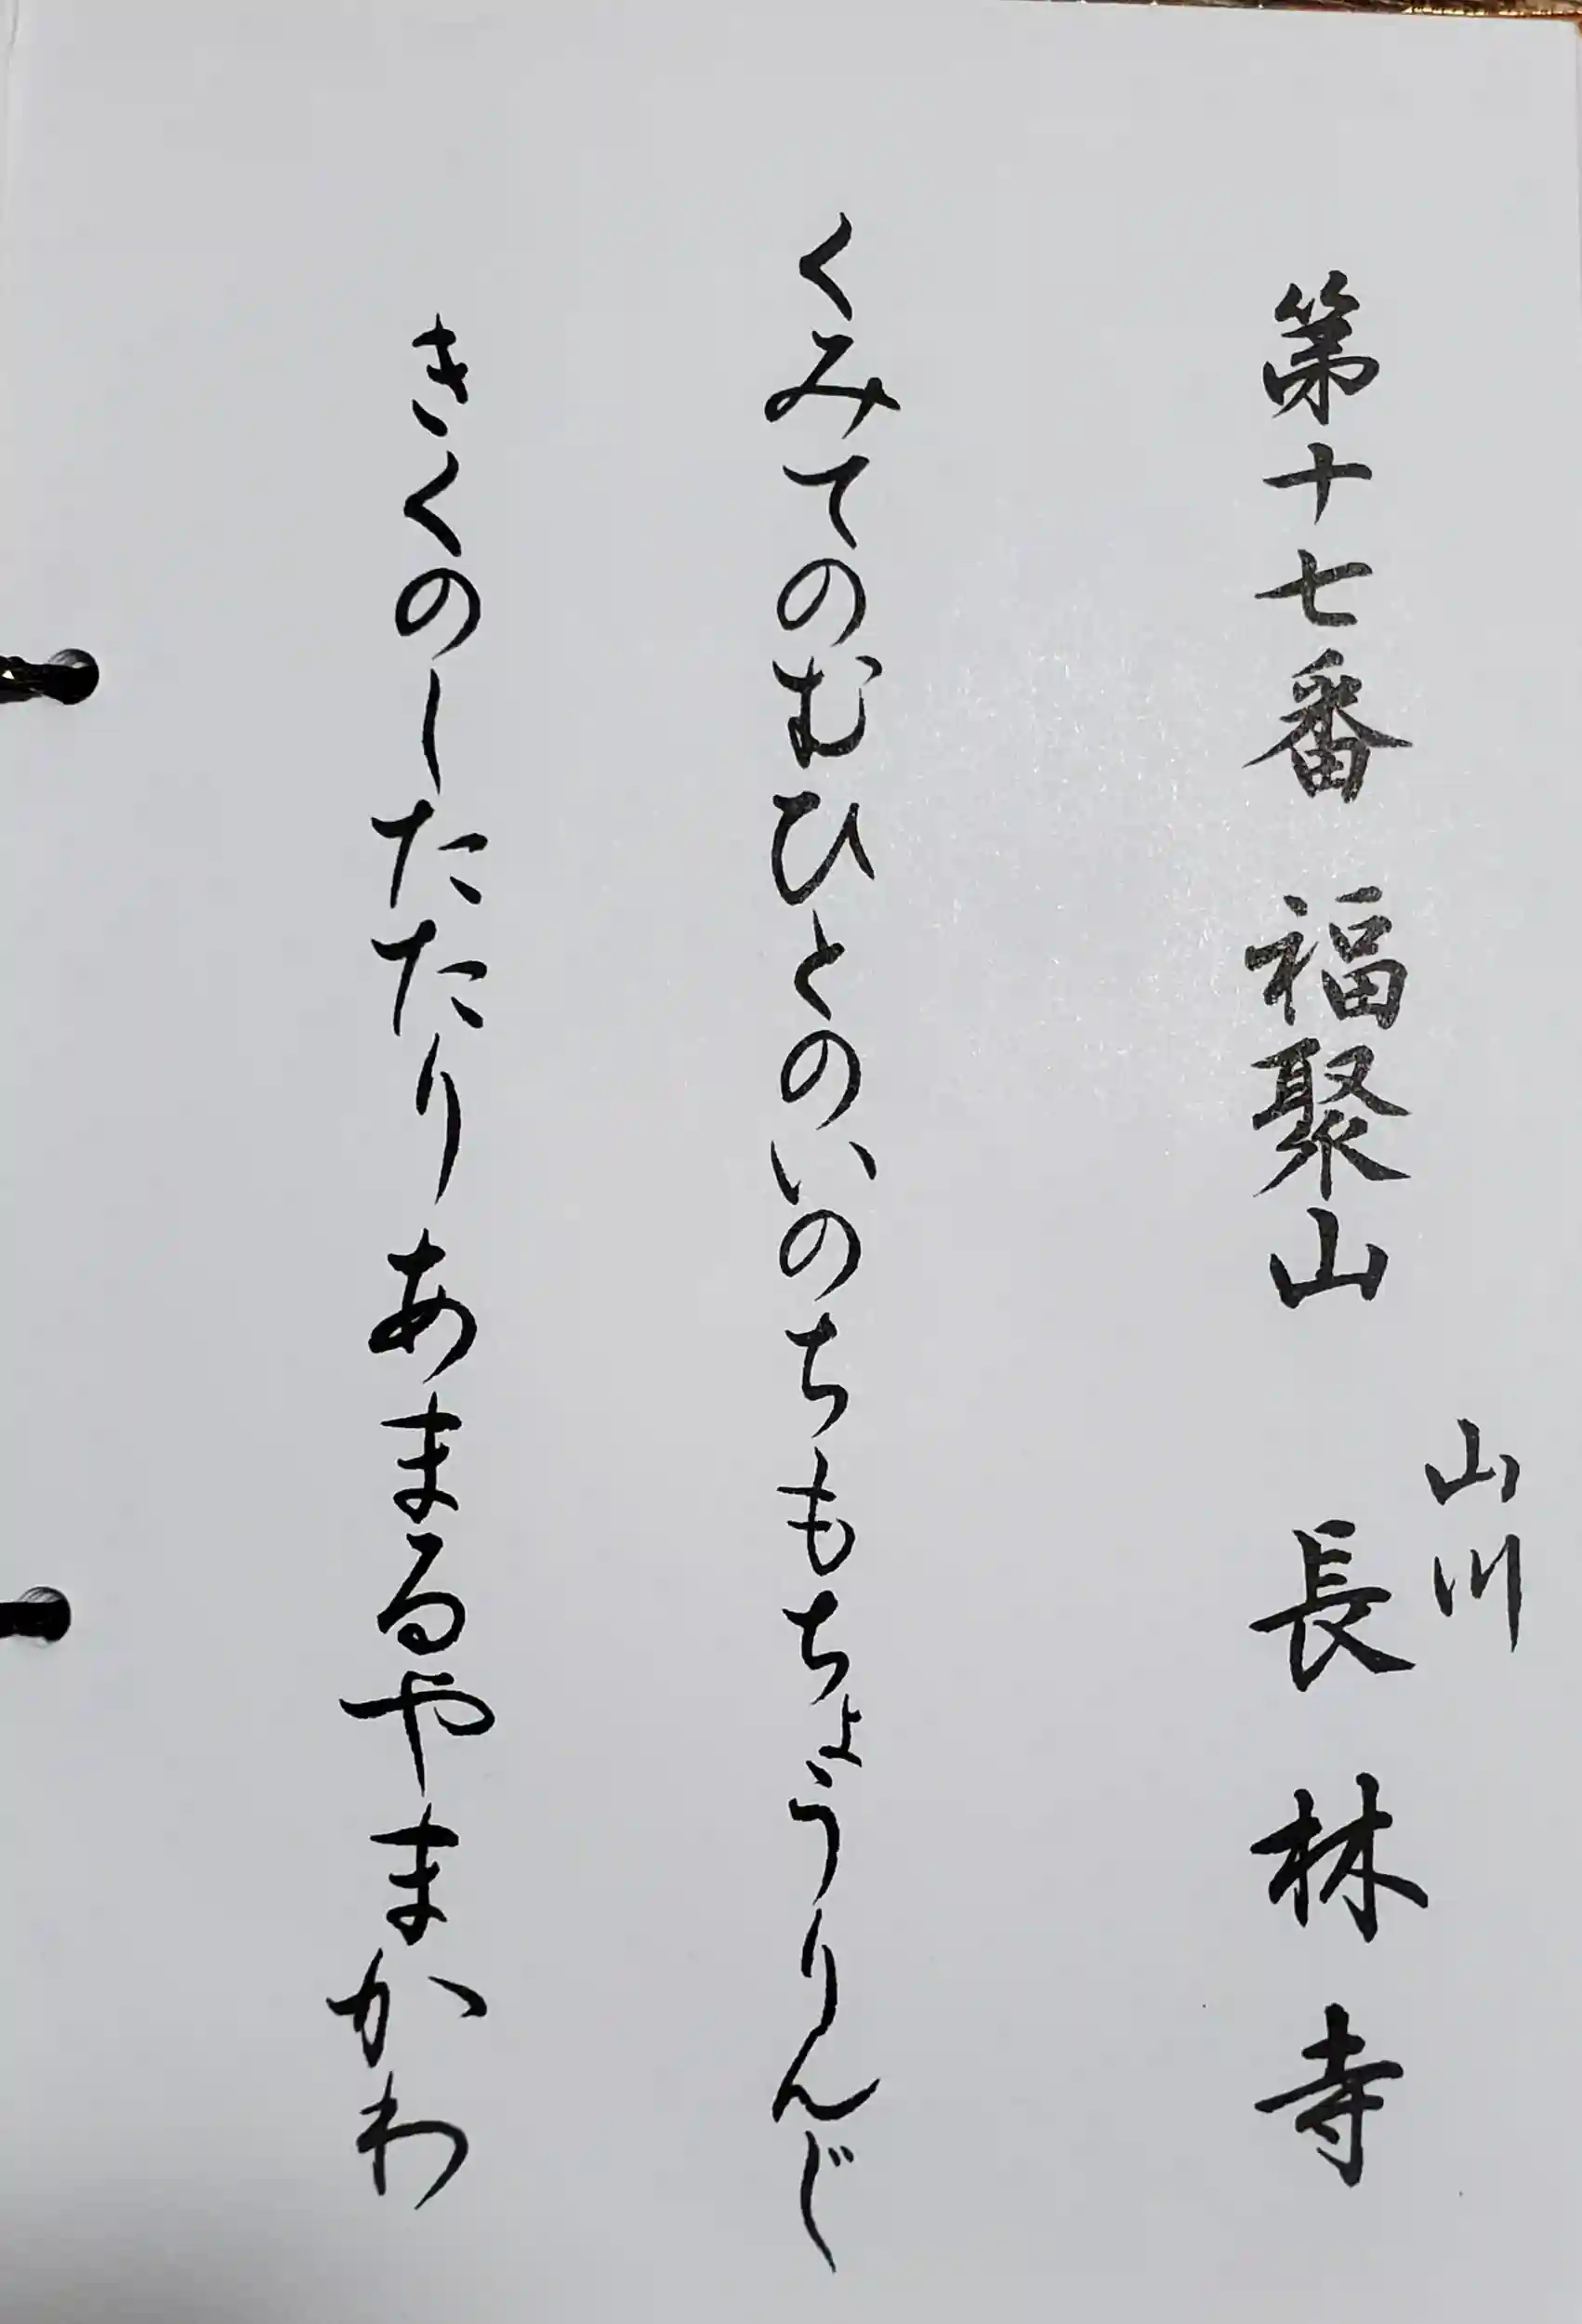 第十七番 福聚山 山川 長林寺
くみてのむひとのいのちもちょうりんじ
きくのしたたりあまるやまかわ